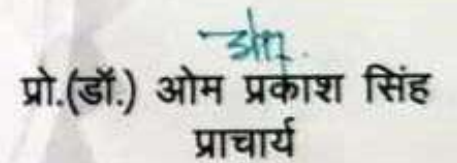 प्रो.(डॉ.) ओम प्रकाश सिंह
प्राचार्य